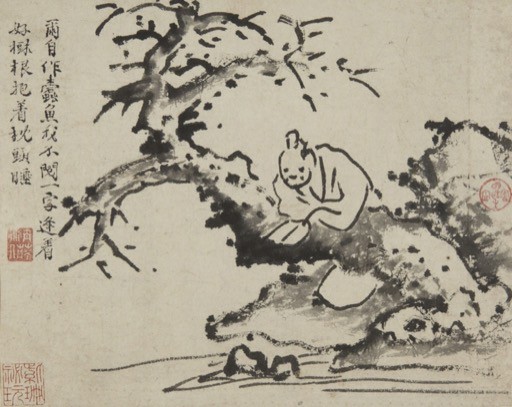 爾自作蠹魚我不閱一字逢着
好樹根抱着枕頭睡